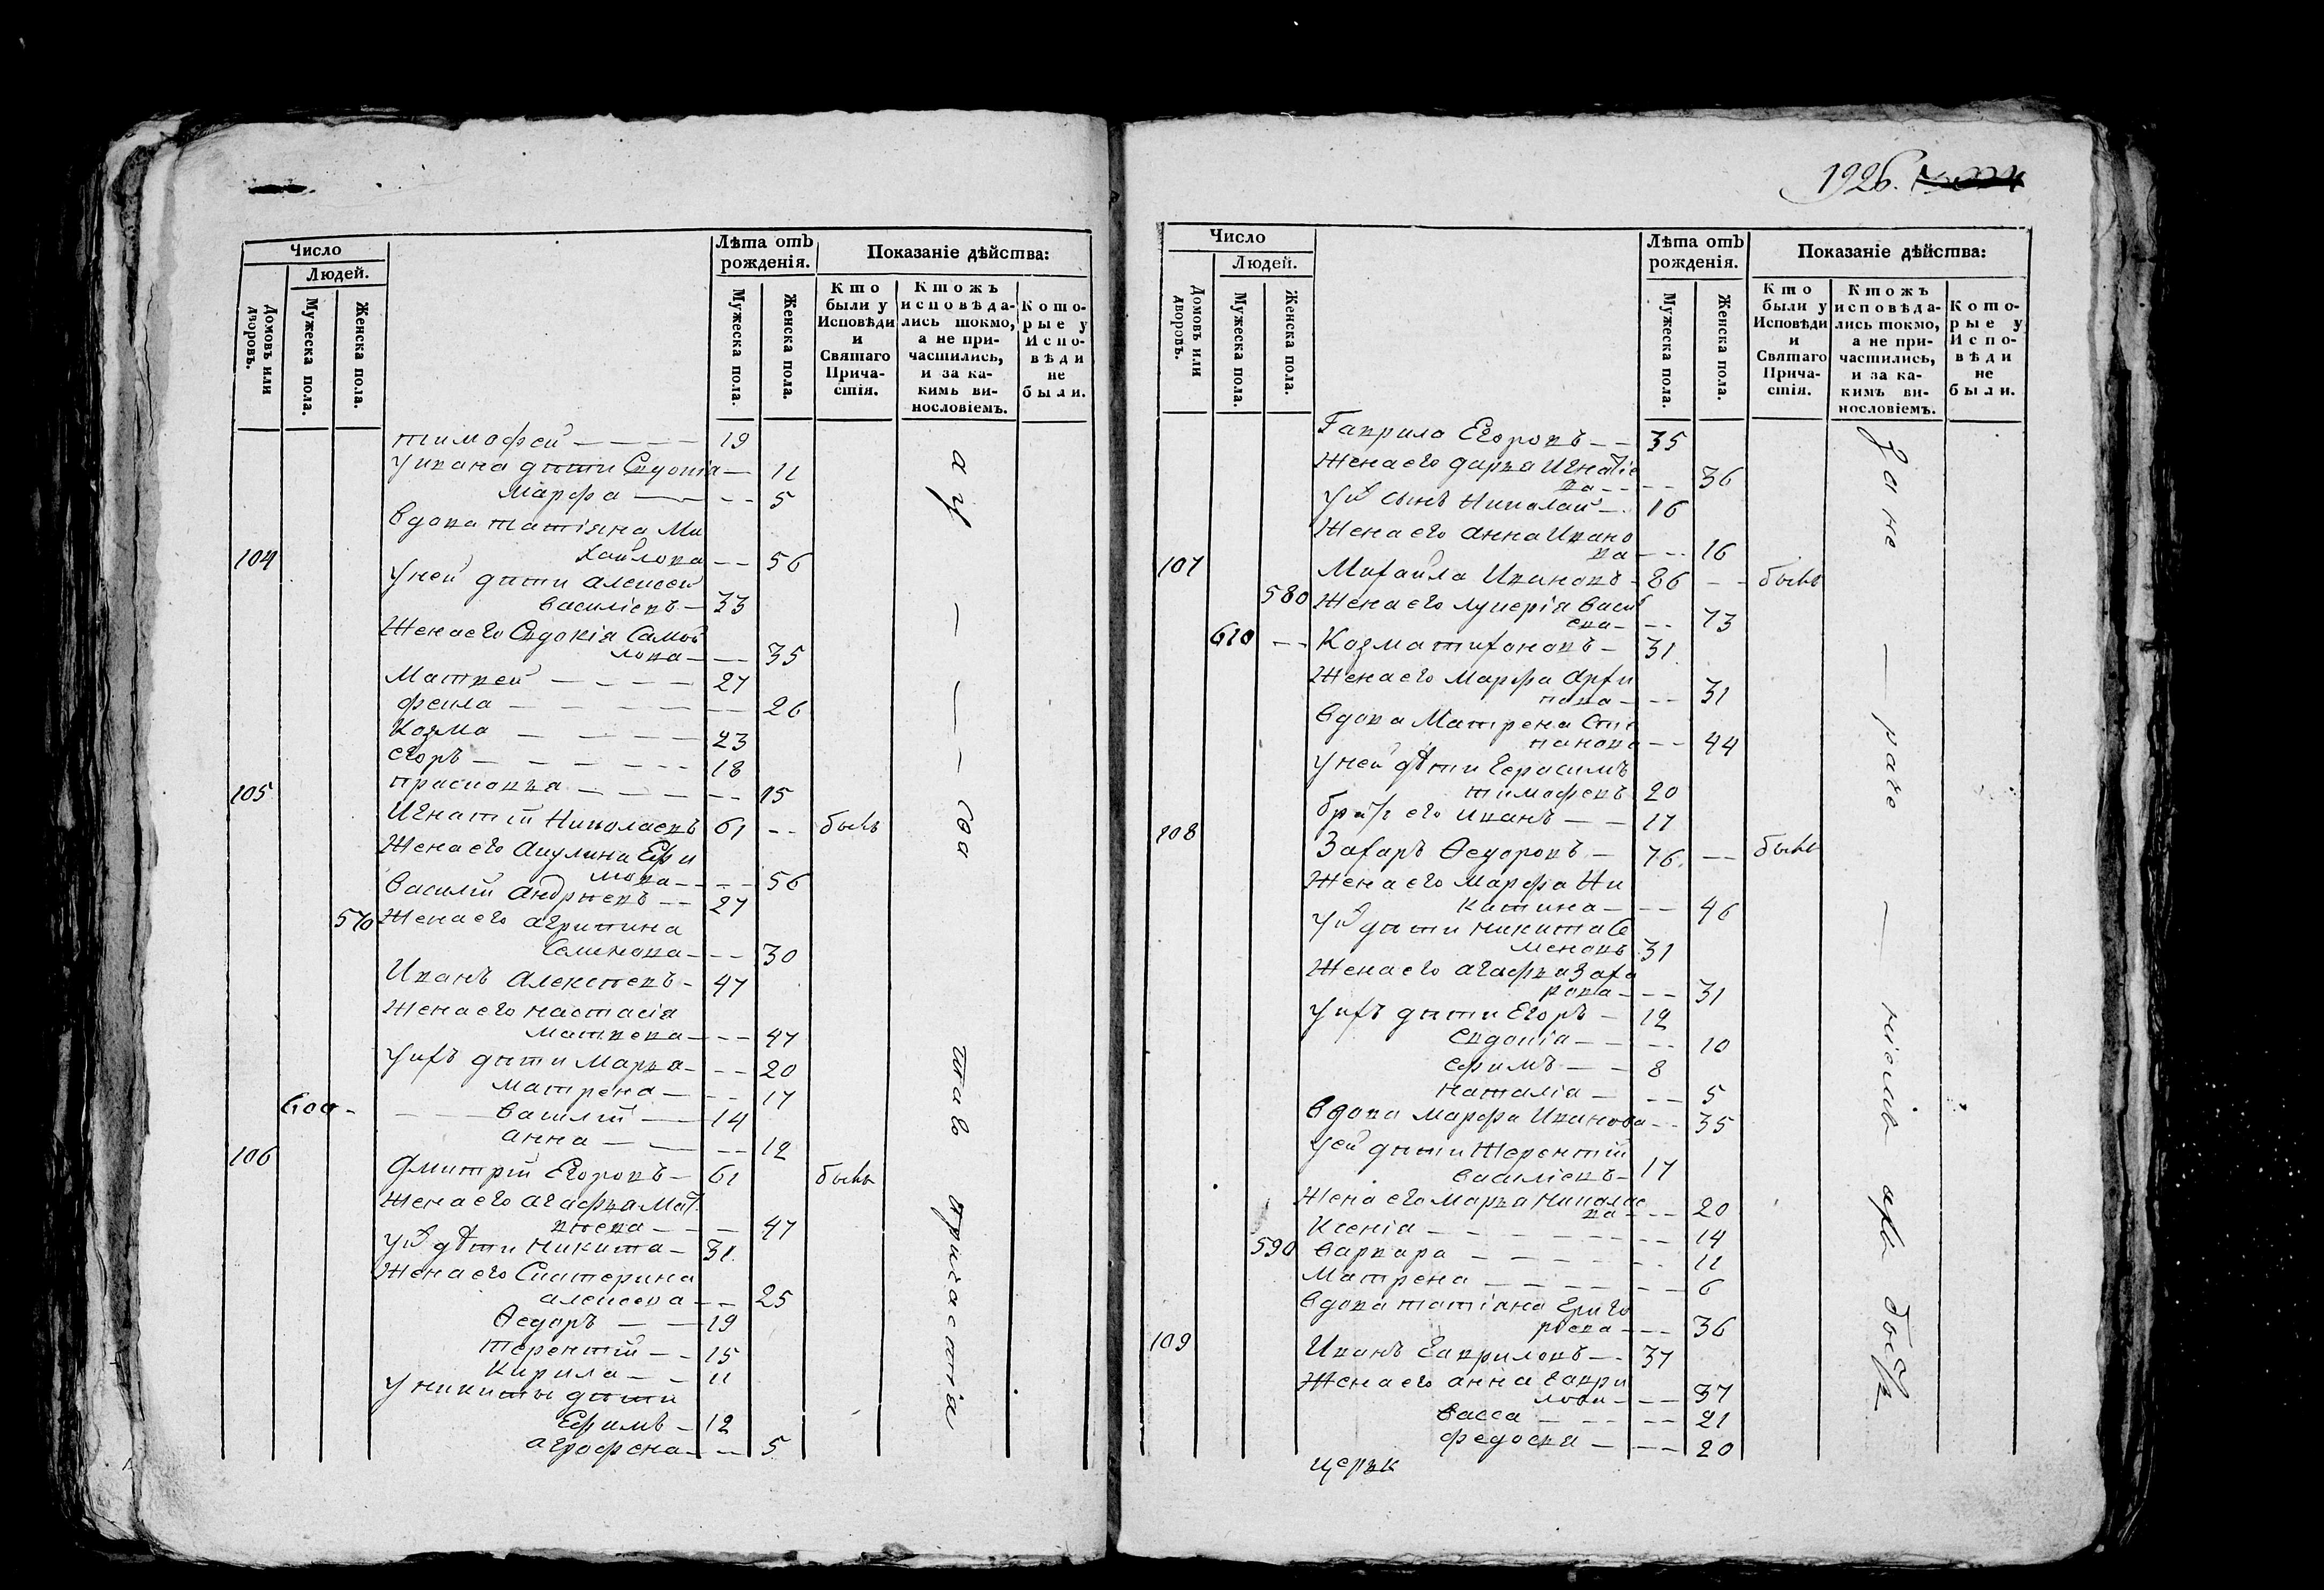 Число
Людей.
Домовъ или дворовъ.
Мужеска пола.
Женска пола.
Лѣта отъ рожденія.
Мужеска пола.
Женска пола.
Показаніе дѣйства:
Кто были у Исповѣди и Святаго Причастія.
Ктожъ исповѣдались токмо, а не причастились, и за какимъ винословіемъ.
Которые у Исповѣди не были.
тимофей — 19
у ивана дѣти Евдокіа — 11
Марфа — 5
Вдова татіяна Ми
104 хайлова — 56
у ней дѣти алексей
василіевъ — 33
Жена его Евдокія Самой
лова — 35
Матвей — 27
фекла — 26
Козма — 23
егоръ — 18
прасковья — 15
105
Игнатій Николаевъ 61 — бывъ
Жена его Акулина Ефи
мова — 56
Василій андрѣевъ — 27
570 Жена его агрипина
Семенова — 30
Иванъ Алексѣевъ — 47
Жена его настасія
матвева — 47
у ихъ дѣти Марья — 20
матрена — 17
600 — василій — 14
анна — 12
106
Дмитрій Егоровъ — 61 бывъ
Жена его агафья Мат
вѣева — 47
у их дѣти никита — 31
Жена его Екатерина
алексева — 25
Ѳедоръ — 19
терентій — 15
Кирила — 11
у никиты дѣти
Ефимъ — 12
агрофена — 5
причастія
1926.
Число
Людей.
Домовъ или дворовъ.
Мужеска пола.
Женска пола.
Лѣта отъ рожденія.
Мужеска пола.
Женска пола.
Показаніе дѣйства:
Кто были у Исповѣди и Святаго Причастія.
Ктожъ исповѣдались токмо, а не причастились, и за какимъ винословіемъ.
Которые у Исповѣди не были.
Гаврила Егоровъ — 35
Жена его дарья Игнатіе
ва — 36
у их сынъ Николай — 16
Жена его анна Ивано
ва — 16
107
Михайла Ивановъ — 86 — бывъ
580 Жена его лукерія Васи
ева — 73
610 — Козма тихоновъ — 31
Жена его Марфа архи
пова — 31
Вдова Матрена Сте
панова — 44
у ней дѣти Герасимъ
тимофеевъ 20
братъ его иванъ — 17
108
Захаръ Ѳедоровъ — 76. — бывъ
Жена его марфа Ни
китина — 46
у их дѣти никита Се
меновъ 31
Жена его агафья Заха
рова — 31
у ихъ дѣти Егоръ — 12
Евдокіа — 10
ефимъ — 8
наталіа — 5
Вдова марфа Иванова — 35
у ей дѣти Терентій
василіевъ — 17
Жена его марья николае
ва — 20
Ксеніа — 14
590 варвара — 11
матрена — 6
Вдова татіана Григо
рьева — 36
109
Иванъ Гавриловъ — 37
Жена его анна гаври
лова — 37
васса — 21
федосья — 20
церкв